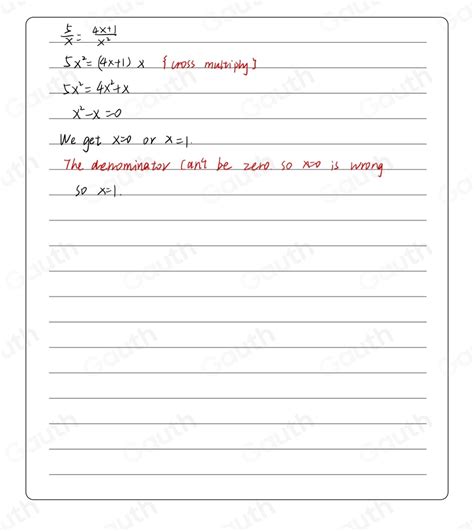 5/x = 4x+1/x²
5x² = (4x+1) x {cross multiply}
5x² = 4x²+x
x²-x=0
We get x=0 or x=1.
The denominator can't be zero. so x=0 is wrong
so x=1.
Gauth